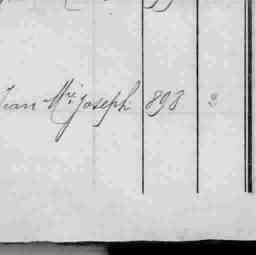 Jean Mie Joseph 898 2